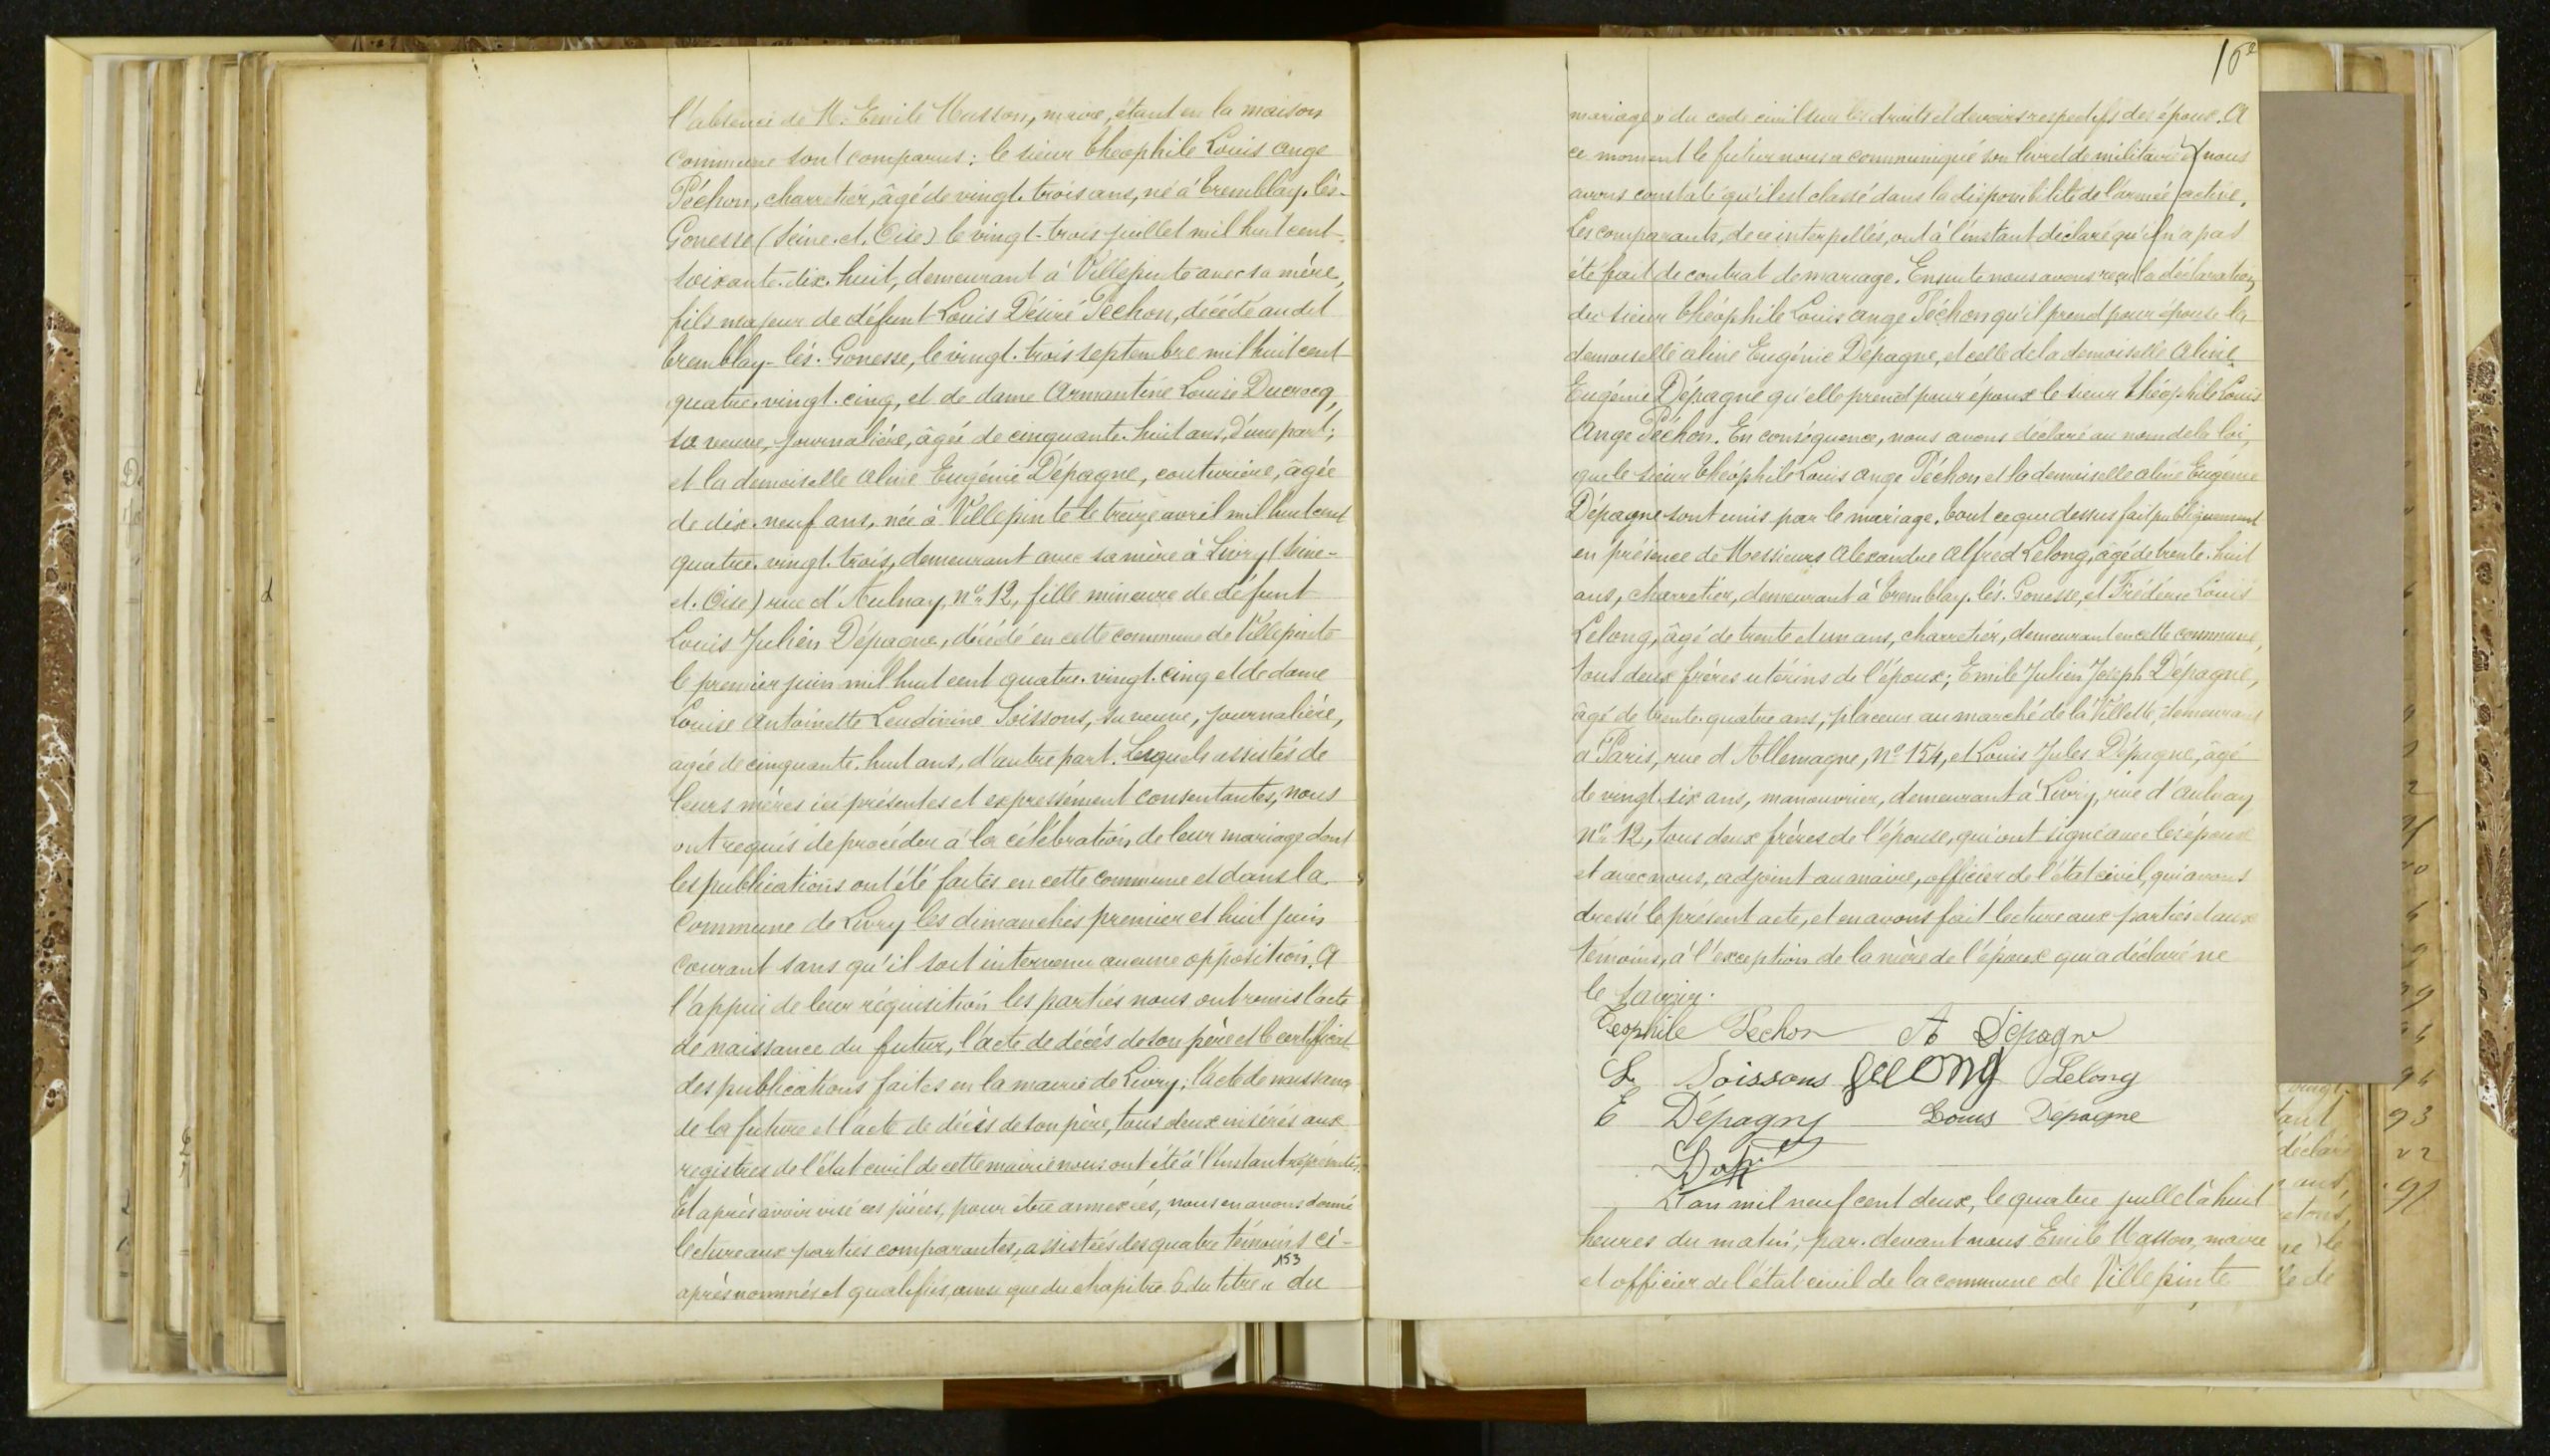 l'absence de M. Emile Masson, maire, étant en la maison
Commune sont comparus : le sieur Théophile Louis Ange
Péchon, charretier, âgé de vingt-trois ans, né à Tremblay-lès-
Gonesse (Seine-et-Oise) le vingt-trois juillet mil huit cent
soixante-dix-huit, demeurant à Villepinte avec sa mère,
fils majeur de défunt Louis Désiré Péchon, décédé audit
Tremblay-lès-Gonesse, le vingt-trois septembre mil huit cent
quatre-vingt-cinq, et de dame Armantine Louise Ducrocq,
sa veuve, journalière, âgée de cinquante-huit ans, d'une part ;
et la demoiselle Aline Eugénie Dépagne, couturière, âgée
de dix-neuf ans, née à Villepinte le treize avril mil huit cent
quatre-vingt-trois, demeurant avec sa mère à Livry (Seine-
et-Oise) rue d'Aulnay, n° 12, fille mineure de défunt
Louis Julien Dépagne, décédé en cette commune de Villepinte
le premier juin mil huit cent quatre-vingt-cinq et de dame
Louise Antoinette Leudivine Soissons, sa veuve, journalière,
âgée de cinquante-huit ans, d'autre part. Lesquels assistés de
leurs mères ici présentes et expressément consentantes, nous
ont requis de procéder à la célébration de leur mariage dont
les publications ont été faites en cette commune et dans la
Commune de Livry les dimanches premier et huit juin
courant sans qu'il soit intervenu aucune opposition. A
l'appui de leur réquisition les parties nous ont remis l'acte
de naissance du futur, l'acte de décès de son père et le certificat
des publications faites en la mairie de Livry ; l'acte de naissance
de la future et l'acte de décès de son père, tous deux insérés aux
registres de l'état civil de cette mairie nous ont été à l'instant représentés.
Et après avoir visé ces pièces, pour être annexées, nous en avons donné
lecture aux parties comparantes, assistées des quatre témoins ci-
153
après nommés et qualifiés, ainsi que du chapitre 6 du titre « du
16e
mariage » du code civil sur les droits et devoirs respectifs des époux. A
ce moment le futur nous a communiqué son livret de militaire et nous
avons constaté qu'il est classé dans la disponibilité de l'armée active.
Les comparants, de ce interpellés, ont à l'instant déclaré qu'il n'a pas
été fait de contrat de mariage. Ensuite nous avons reçu la déclaration
du sieur Théophile Louis Ange Péchon qu'il prend pour épouse la
demoiselle Aline Eugénie Dépagne, et celle de la demoiselle Aline
Eugénie Dépagne qu'elle prend pour époux le sieur Théophile Louis
Ange Péchon. En conséquence, nous avons déclaré au nom de la loi,
que le sieur Théophile Louis Ange Péchon et la demoiselle Aline Eugénie
Dépagne sont unis par le mariage. Tout ce que dessus fait publiquement
en présence de Messieurs Alexandre Alfred Lelong, âgé de trente-huit
ans, charretier, demeurant à Tremblay-lès-Gonesse, et Fréderic Louis
Lelong, âgé de trente et un ans, charretier, demeurant en cette commune,
tous deux frères utérins de l'époux ; Emile Julien Joseph Dépagne,
âgé de trente-quatre ans, placeur au marché de la Villette, demeurant
à Paris, rue d'Allemagne, N° 154, et Louis Jules Dépagne, âgé
de vingt-six ans, manouvrier, demeurant à Livry, rue d'Aulnay
n° 12, tous deux frères de l'épouse, qui ont signé avec les époux
et avec nous, adjoint au maire, officier de l'état civil, qui avons
dressé le présent acte, et en avons fait lecture aux parties et aux
témoins, à l'exception de la mère de l'époux qui a déclaré ne
le savoir.
Teophile Pechon A Dépagne
L Soissons Lelong Lelong
E Dépagne Louis Dépagne
L'an mil neuf cent deux, le quatre juillet à huit
heures du matin, par-devant nous Emile Masson, maire
et officier de l'état civil de la commune de Villepinte